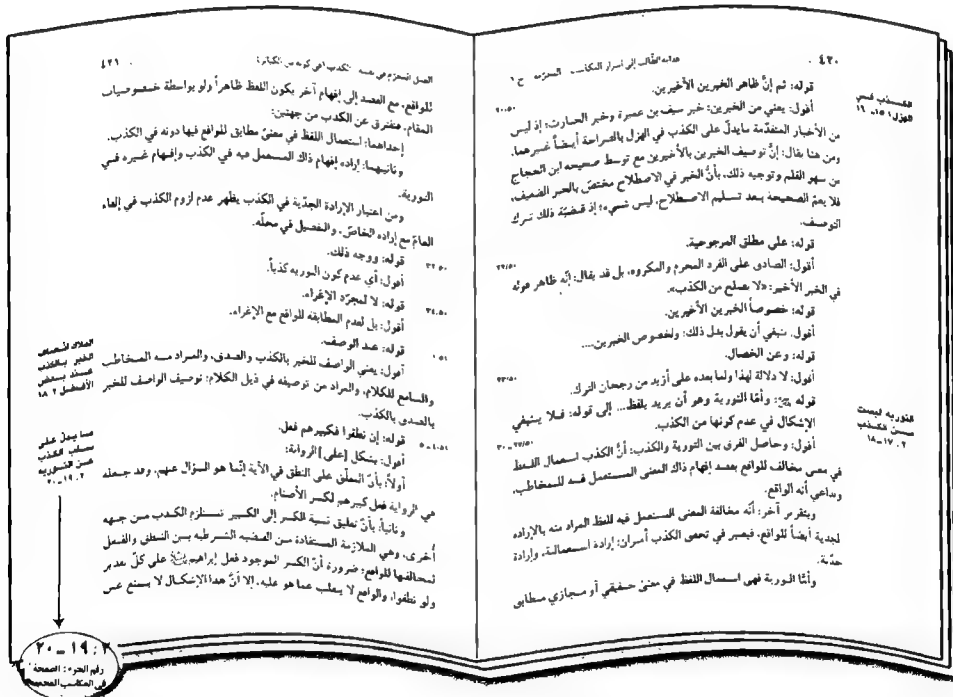 ٤٢٠ هداية الطالب إلى أسرار المكاسب المحرّمة ج ١
قوله: ثم إنّ ظاهر الخبرين الأخيرين.
٢٠،٥٠
الكذب في
الهزل ١٥ـ١٦
أقول: يعني من الخبرين: خبر سيف بن عميرة وخبر الحارث؛ إذ ليس
من الأخبار المتقدّمة ما يدلّ على الكذب في الهزل بالصراحة أيضاً غيرهما.
ومن هنا يقال: إنّ توصيف الخبرين بالأخيرين مع توسط صحيحة ابن الحجاج
من سهو القلم وتوجيه ذلك، بأنّ الخبر في الاصطلاح مختصّ بالخبر الضعيف،
فلا يعمّ الصحيحة بعد تسليم الاصطلاح، ليس بشيء؛ إذ قضيّة ذلك ترك
التوصيف.
قوله: على مطلق المرجوحية.
أقول: الصادق على الفرد المحرم والمكروه، بل قد يقال: إنّه ظاهر قوله
في الخبر الأخير: «لا يصلح من الكذب».
قوله: خصوصاً الخبرين الأخيرين.
أقول: ينبغي أن يقول بدل ذلك: ولخصوص الخبرين....
قوله: وعن الخصال.
أقول: لا دلالة لهذا ولما بعده على أزيد من رجحان الترك.
التورية ليست
من الكذب
٢: ١٧ـ١٨
قوله: وأمّا التورية وهو أن يريد بلفظ... إلى قوله: فلا ينبغي
الإشكال في عدم كونها من الكذب.
أقول: وحاصل الفرق بين التورية والكذب: أنّ الكذب استعمال اللفظ
في معنى مخالف للواقع بقصد إفهام ذاك المعنى المستعمل فيه للمخاطب،
وبداعي أنه الواقع.
وبتقرير آخر: أنّه مخالفة المعنى المستعمل فيه للفظ المراد منه بالإرادة
الجدية أيضاً للواقع، فيعتبر في تحقق الكذب أمران: إرادة استعمالية، وإرادة
جدّية.
وأمّا التورية فهي استعمال اللفظ في معنىً حقيقي أو مجازي مطابق
٤٢١
للواقع، مع القصد إلى إفهام آخر يكون اللفظ ظاهراً ولو بواسطة خصوصيات
المقام، فتفترق عن الكذب من جهتين:
إحداهما: استعمال اللفظ في معنىً مطابق للواقع فيها دونه في الكذب.
وثانيهما: إرادة إفهام ذاك المستعمل فيه في الكذب وإفهام غيره في
التورية.
ومن اعتبار الإرادة الجدّية في الكذب يظهر عدم لزوم الكذب في إلقاء
العامّ مع إرادة الخاصّ، والتفصيل في محلّه.
قوله: ووجه ذلك.
أقول: أي عدم كون التورية كذباً.
قوله: لا لمجرّد الإغراء.
أقول: بل لعدم المطابقة للواقع مع الإغراء.
قوله: عند الوصف.
الملاك لاتّصاف
الخبر بالكذب
عند بعض
الأفاضل ٢: ١٨
أقول: يعني الواصف للخبر بالكذب والصدق، والمراد منه المخاطب
والسامع للكلام، والمراد من توصيفه في ذيل الكلام: توصيف الواصف للخبر
بالصدق بالكذب.
قوله: إن نطقوا فكبيرهم فعل.
ما يدلّ على
سلب الكذب
عن التورية
٢: ١٩ـ٢٠
أقول: يشكل [على] الرواية:
أولاً: بأنّ المعلّق على النطق في الآية إنّما هو السؤال عنهم، وقد جعله
في الرواية فعل كبيرهم لكسر الأصنام.
وثانياً: بأنّ تعليق نسبة الكسر إلى الكبير تستلزم الكذب من جهة
أخرى، وهي الملازمة المستفادة من القضية الشرطية بين النطق والفعل
لمخالفتها للواقع؛ ضرورة أنّ الكسر الموجود فعل إبراهيم على كلّ تقدير
ولو نطقوا، والواقع لا ينقلب عما هو عليه. إلا أنّ هذا الإشكال لا يسنع عن
٢: ١٩ـ٢٠
رقم الجزء: الصفحة
في المكاسب المحرمة